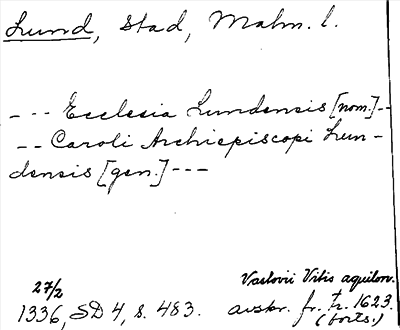 Lund, Stad, Malm. l.
--- Ecclesia Lundensis [nom.]--
-- Caroli Archiepiscopi Lun-
densis [gen.]---
27/2
1336, SD 4, s. 483.
Vastovii Vitis aquilon.
avskr. fr. tr. 1623.
(forts.)